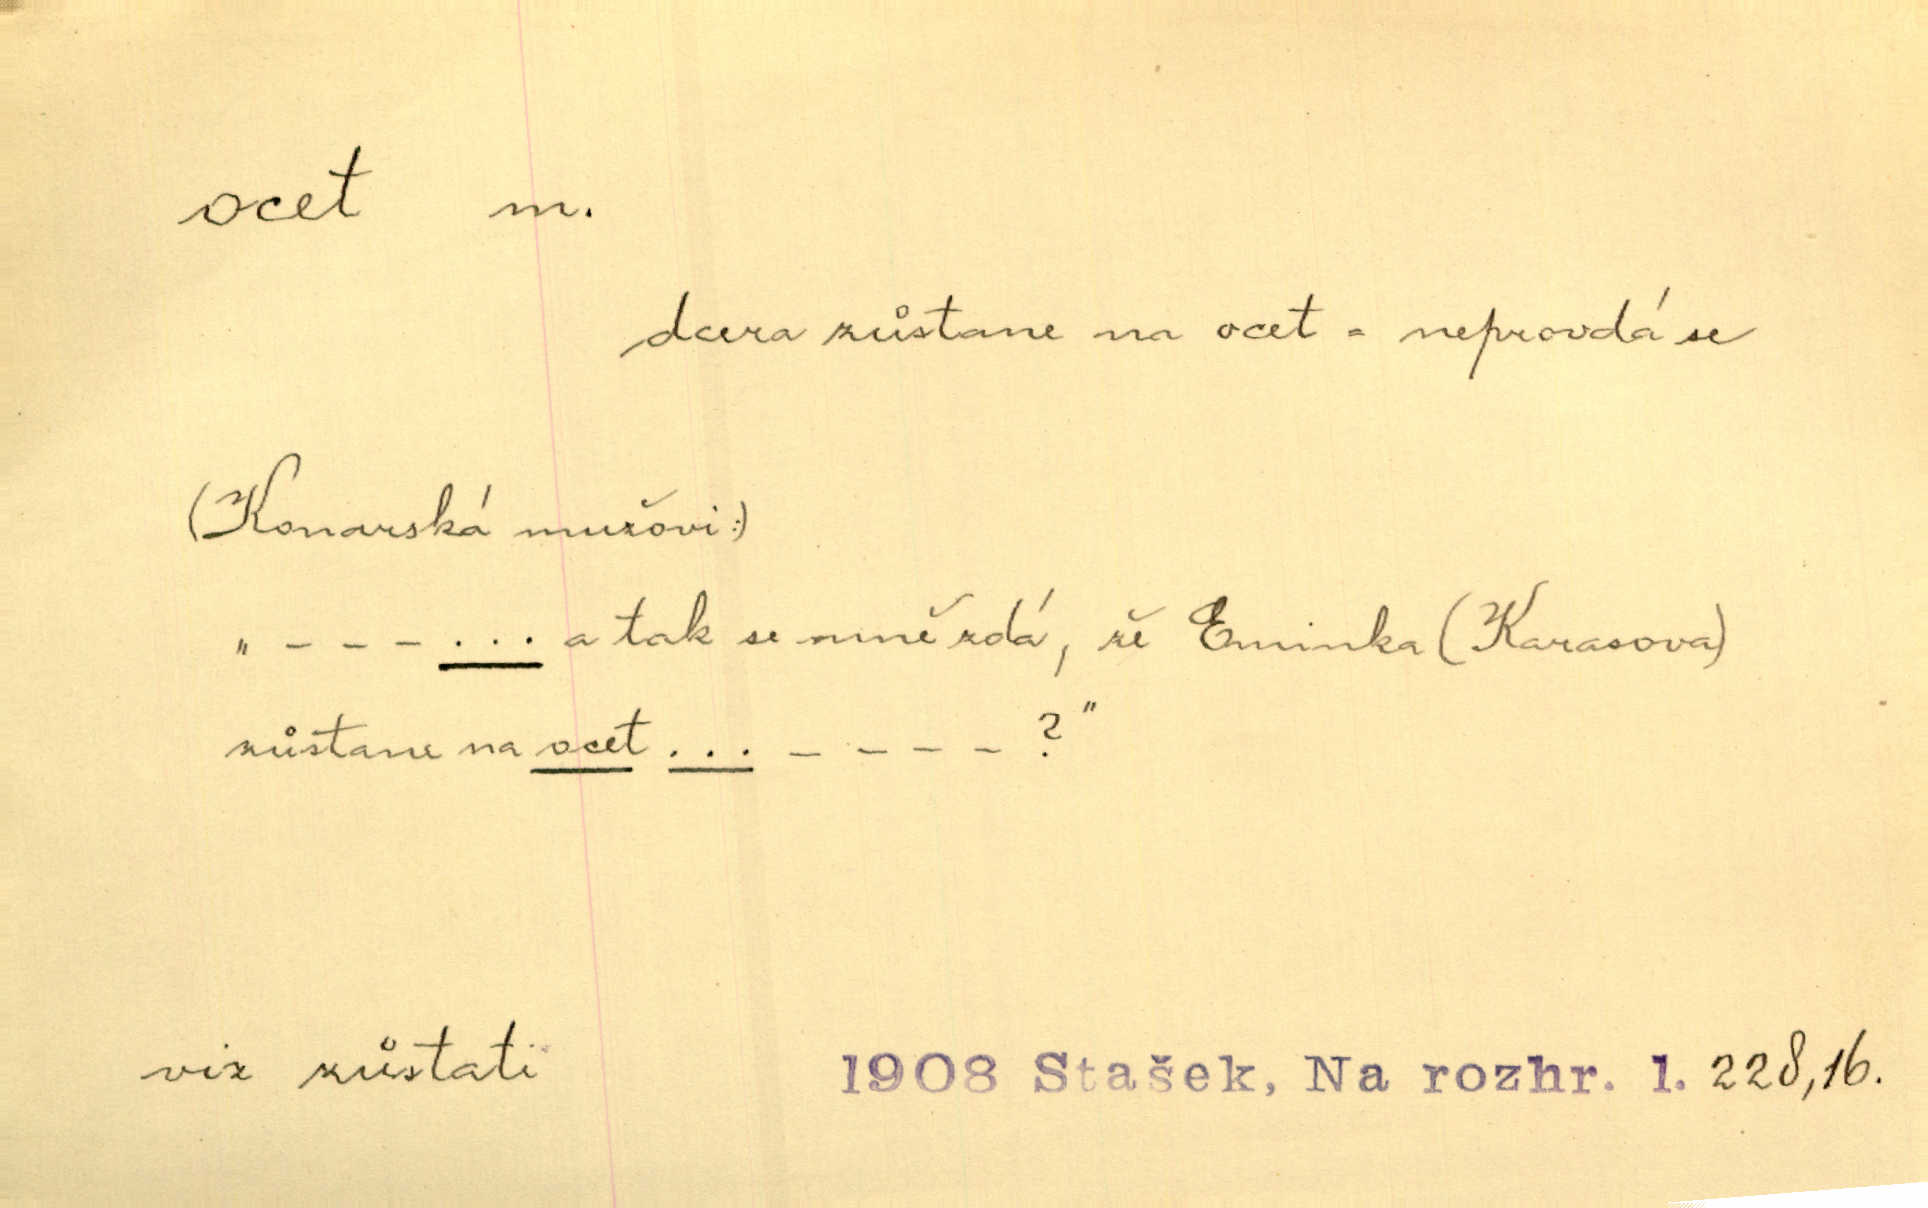 ocet m.
dcera zůstane na ocet = neprovdá se
(Konarská mužovi:)
„ – – – . . . a tak se mně zdá, že Eminka (Karasova)
zůstane na ocet . . . – – – – ?"
viz zůstati
1908 Stašek, Na rozhr. 1. 228,16.